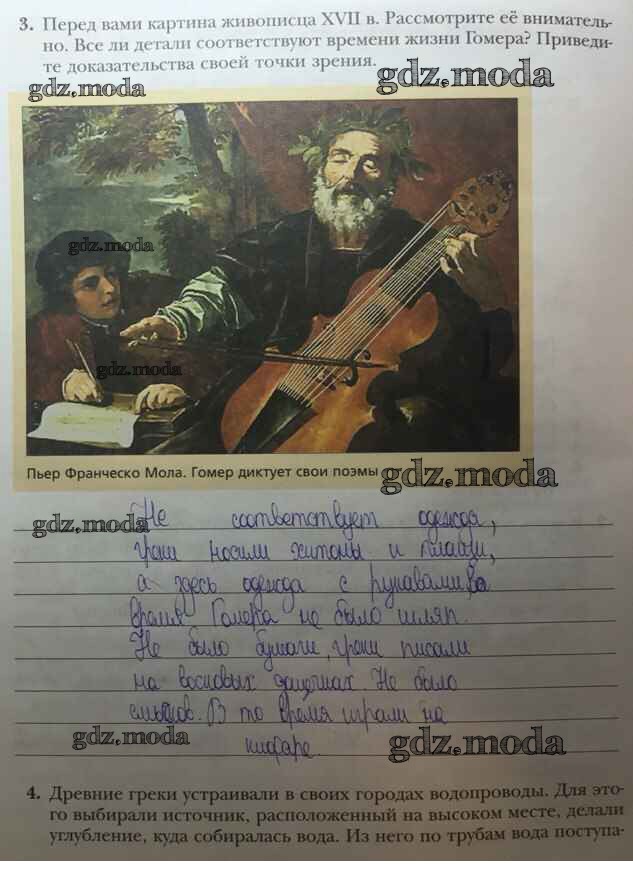 3. Перед вами картина живописца XVII в. Рассмотрите её вниматель-
но. Все ли детали соответствуют времени жизни Гомера? Приведи-
те доказательства своей точки зрения.
gdz.moda
gdz.moda
gdz.moda
gdz.moda
Пьер Франческо Мола. Гомер диктует свои поэмы
gdz.moda
Не соответствует одежда,
gdz.moda
греки носили хитоны и плащи,
а здесь одежда с рукавами, во
время Гомера не было шляп.
Не было бумаги, греки писали
на восковых дощечках. Не было
смычков. В то время играли на
gdz.moda
кифаре
gdz.moda
4. Древние греки устраивали в своих городах водопроводы. Для это-
го выбирали источник, расположенный на высоком месте, делали
углубление, куда собиралась вода. Из него по трубам вода поступа-